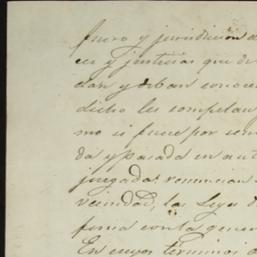 fuero y jurisdiccion de
ces y justicias que de
dan y deban conocer
dicho les compelan
mo si fuese por sen
da y pasada en aut
juzgada: renuncian
vecindad, las Leyes d
forma con la gener
En cuyos terminos a